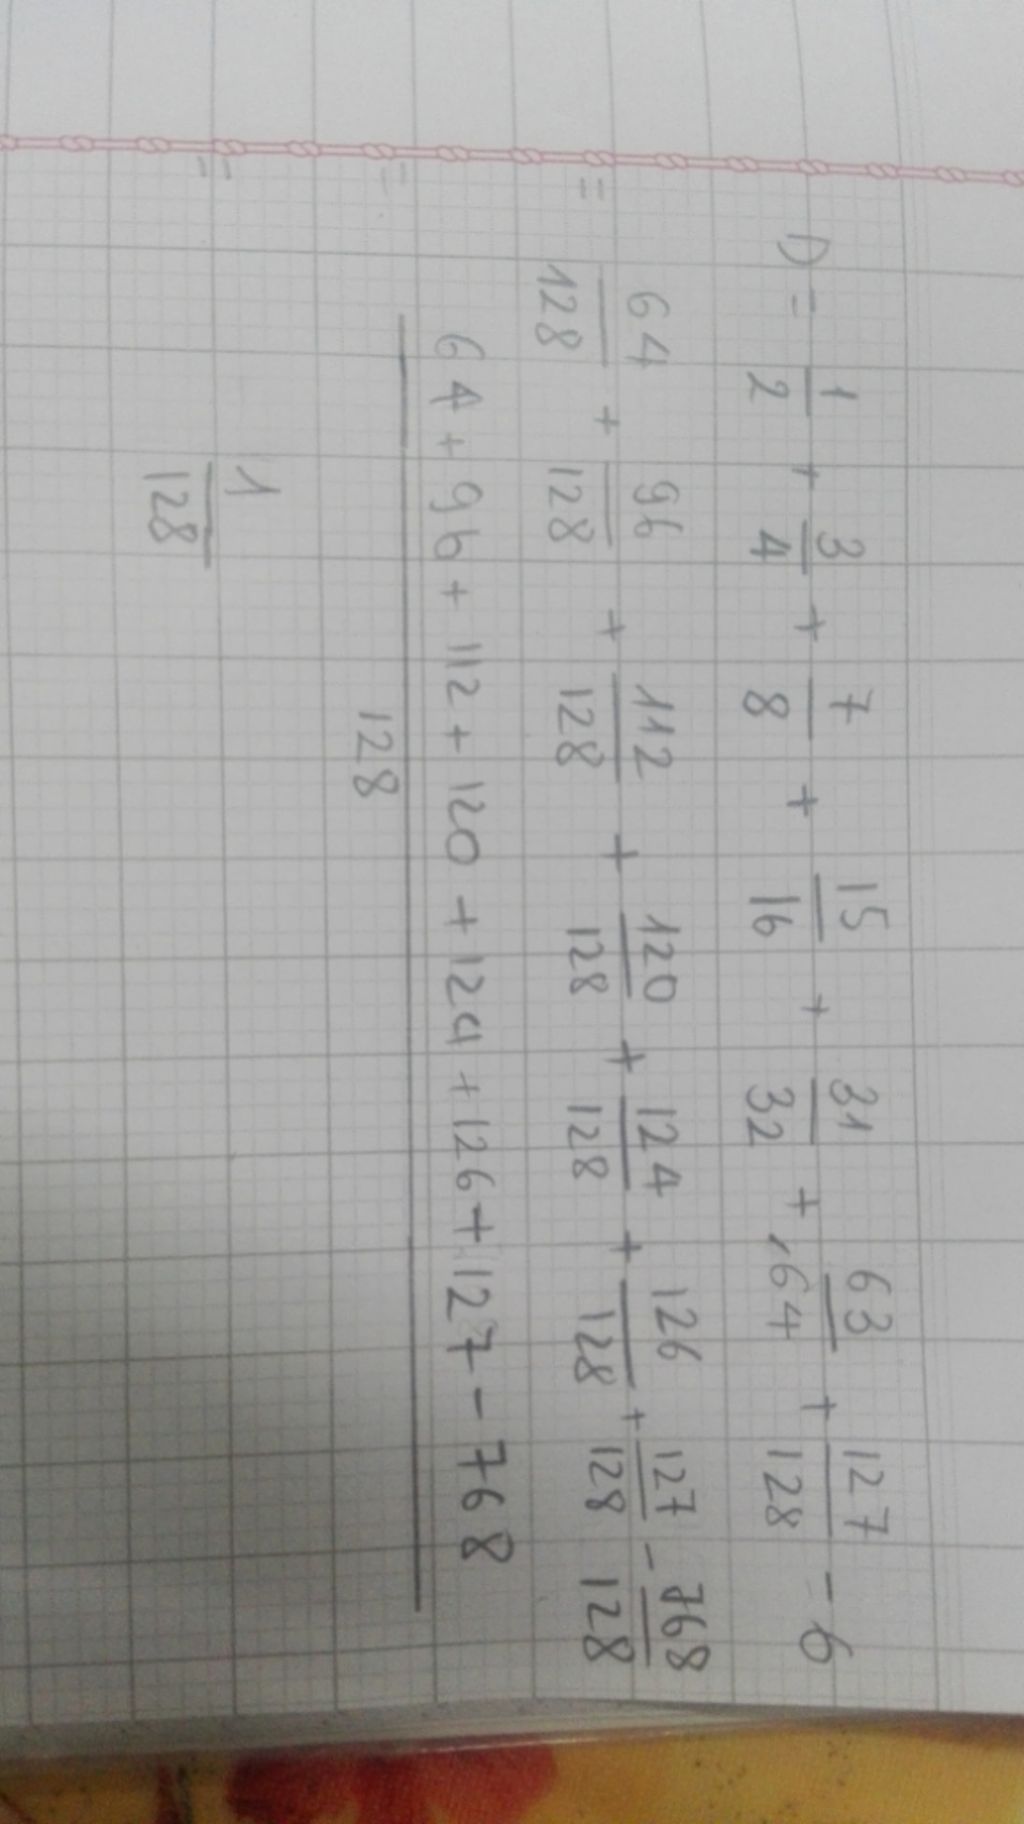 D = 1/2 + 3/4 + 7/8 + 15/16 + 31/32 + 63/64 + 127/128 - 6
= 64/128 + 96/128 + 112/128 + 120/128 + 124/128 + 126/128 + 127/128 - 768/128
= (64 + 96 + 112 + 120 + 124 + 126 + 127 - 768)/128
= 1/128